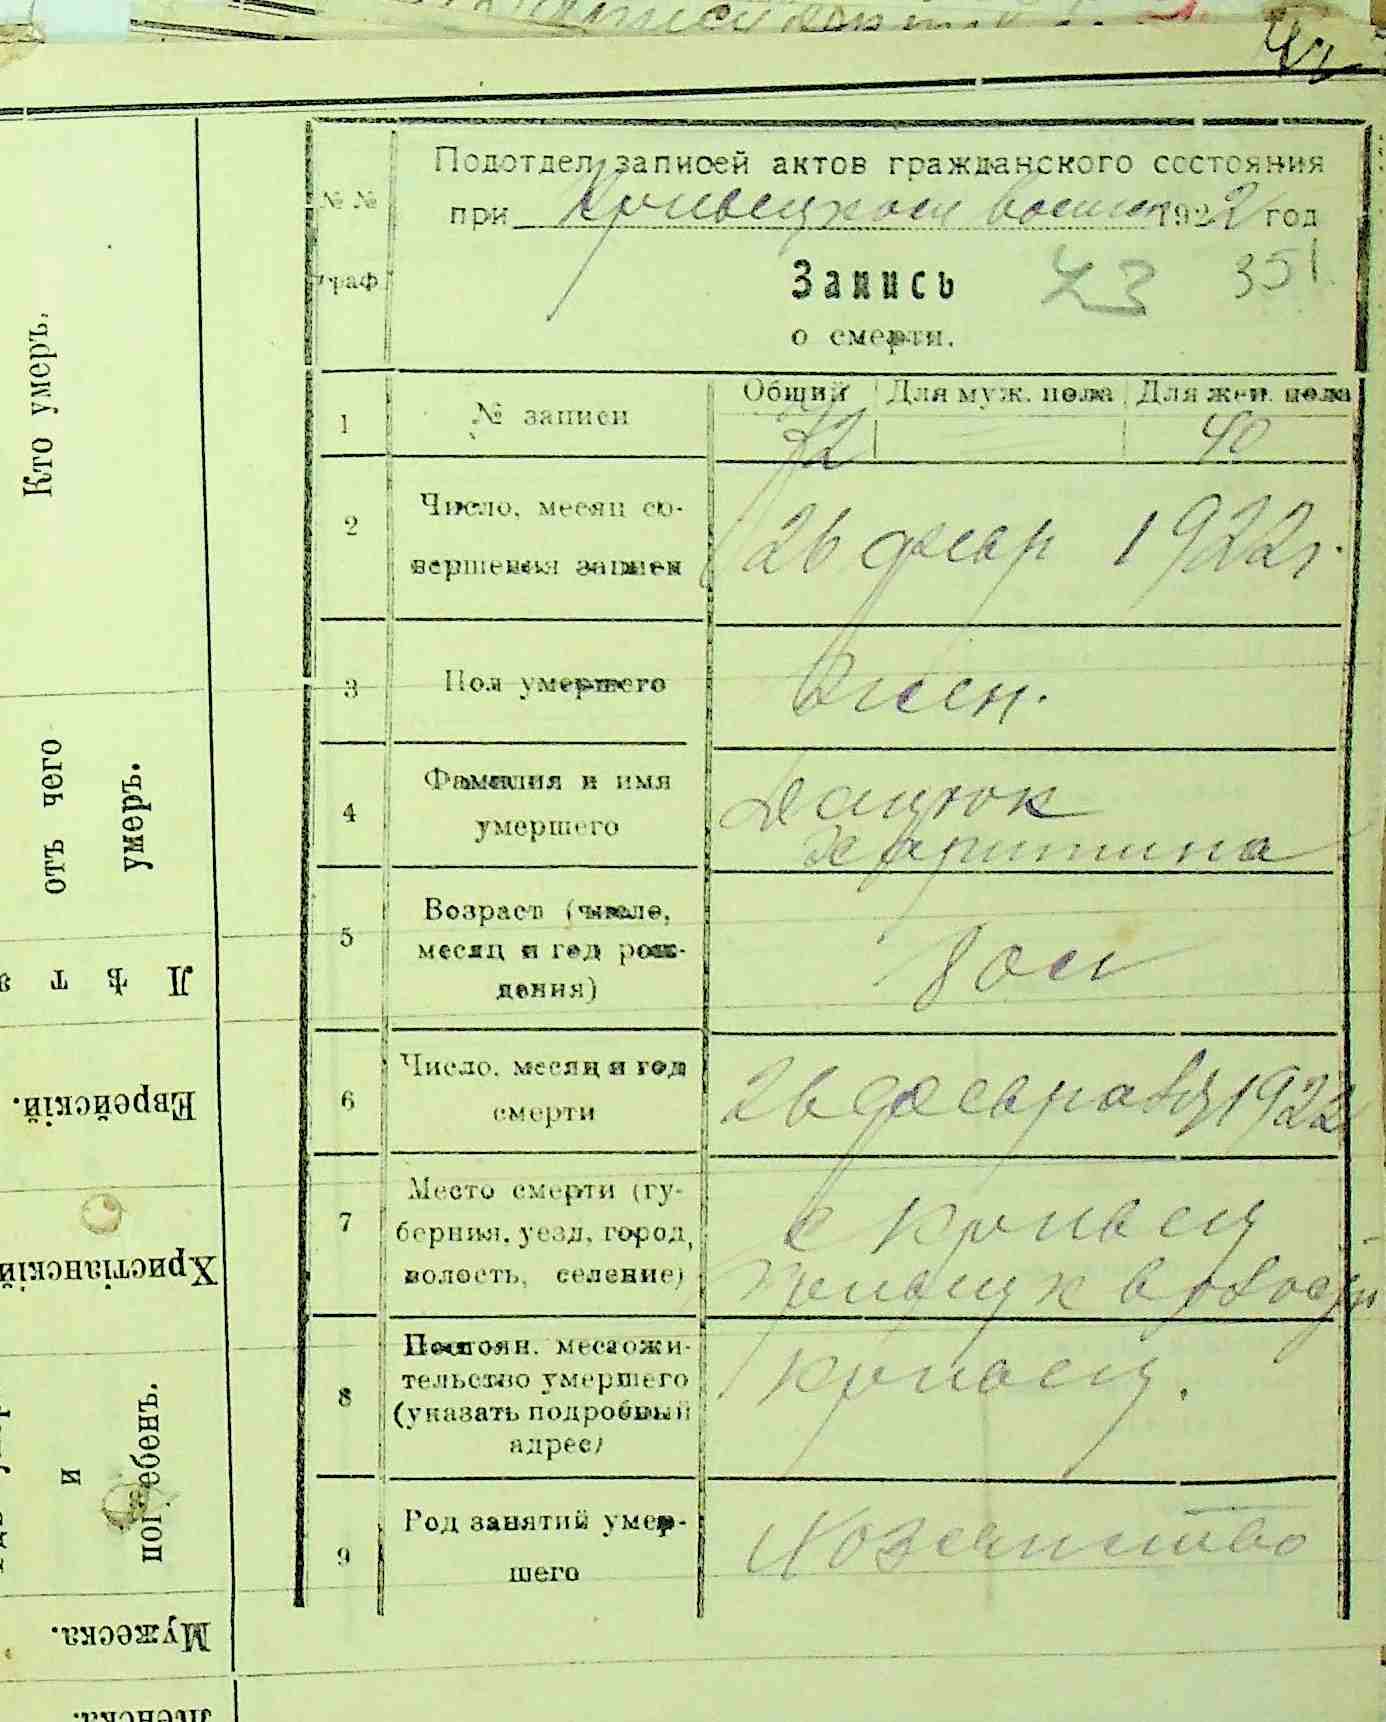 Подотдел записей актов гражданского состояния
№ №
при 1922 год
граф
Запись
73 351
о смерти.
Общий Для муж. пола Для жен. пола
1 № записи 72 40
2 Число, месяц со-
вершения записи
26 февр 1922 г.
3 Пол умершего Жен.
4 Фамилия и имя
умершего
Дацюк
Харитина
5 Возраст (число,
месяц и год рож-
дения)
6 Число, месяц и год
смерти
26 февраля 1922
7 Место смерти (гу-
берния, уезд, город,
волость, селение)
с Кривец
8 Постоян. местожи-
тельство умершего
(указать подробный
адрес)
Кривец.
9 Род занятий умер-
шего
Хозяйство
Кто умеръ.
отъ чего
умеръ.
Лѣта
Еврейскій.
Христіанскій
и
погребенъ.
Мужеска.
Женска.